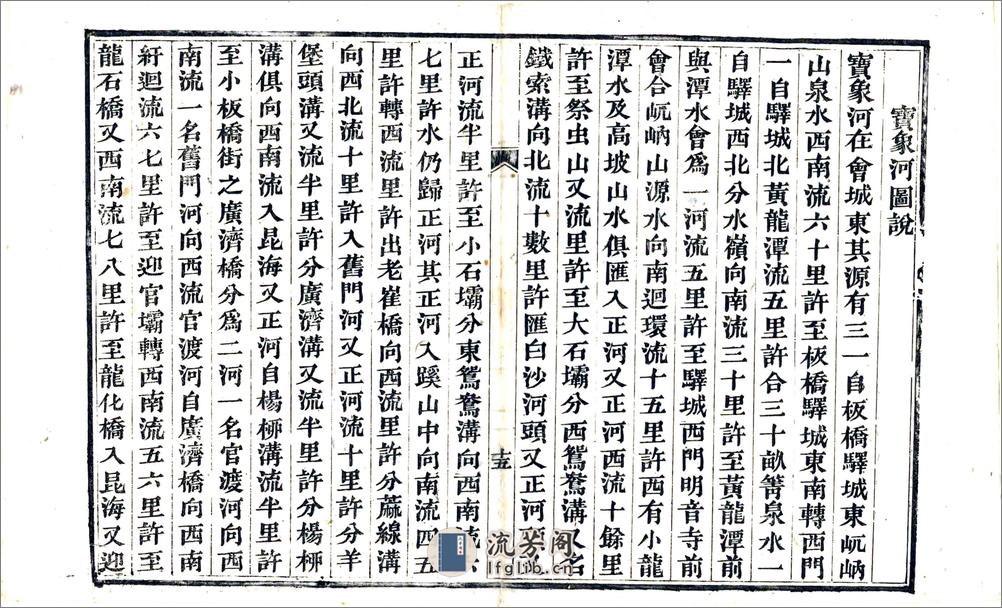 寶象河圖說
寶象河在會城東其源有三一自板橋驛城東岏岉
山泉水西南流六十里許至板橋驛城東南轉西門
一自驛城北黃龍潭流五里許合三十畝箐泉水一
自驛城西北分水嶺向南流三十里許至黃龍潭前
與潭水會爲一河流五里許至驛城西門明音寺前
會合岏岉山源水向南迴環流十五里許西有小龍
潭水及高坡山水俱匯入正河又正河西流十餘里
許至祭虫山又流里許至大石壩分西鴛鴦溝又名
鐵索溝向北流十數里許匯白沙河頭又正河
十五
正河流半里許至小石壩分東鴛鴦溝向西南流
七里許水仍歸正河其正河入蹊山中向南流四五
里許轉西流里許出老崔橋向西流里許分蔴線溝
向西北流十里許入舊門河又正河流十里許分羊
堡頭溝又流半里許分廣濟溝又流半里許分楊柳
溝俱向西南流入昆海又正河自楊柳溝流半里許
至小板橋街之廣濟橋分爲二河一名官渡河向西
南流一名舊門河向西流官渡河自廣濟橋向西南
紆迴流六七里許至迎官壩轉西南流五六里許至
龍石橋又西南流七八里許至龍化橋入昆海又迎
流芳阁
lfglib.cn